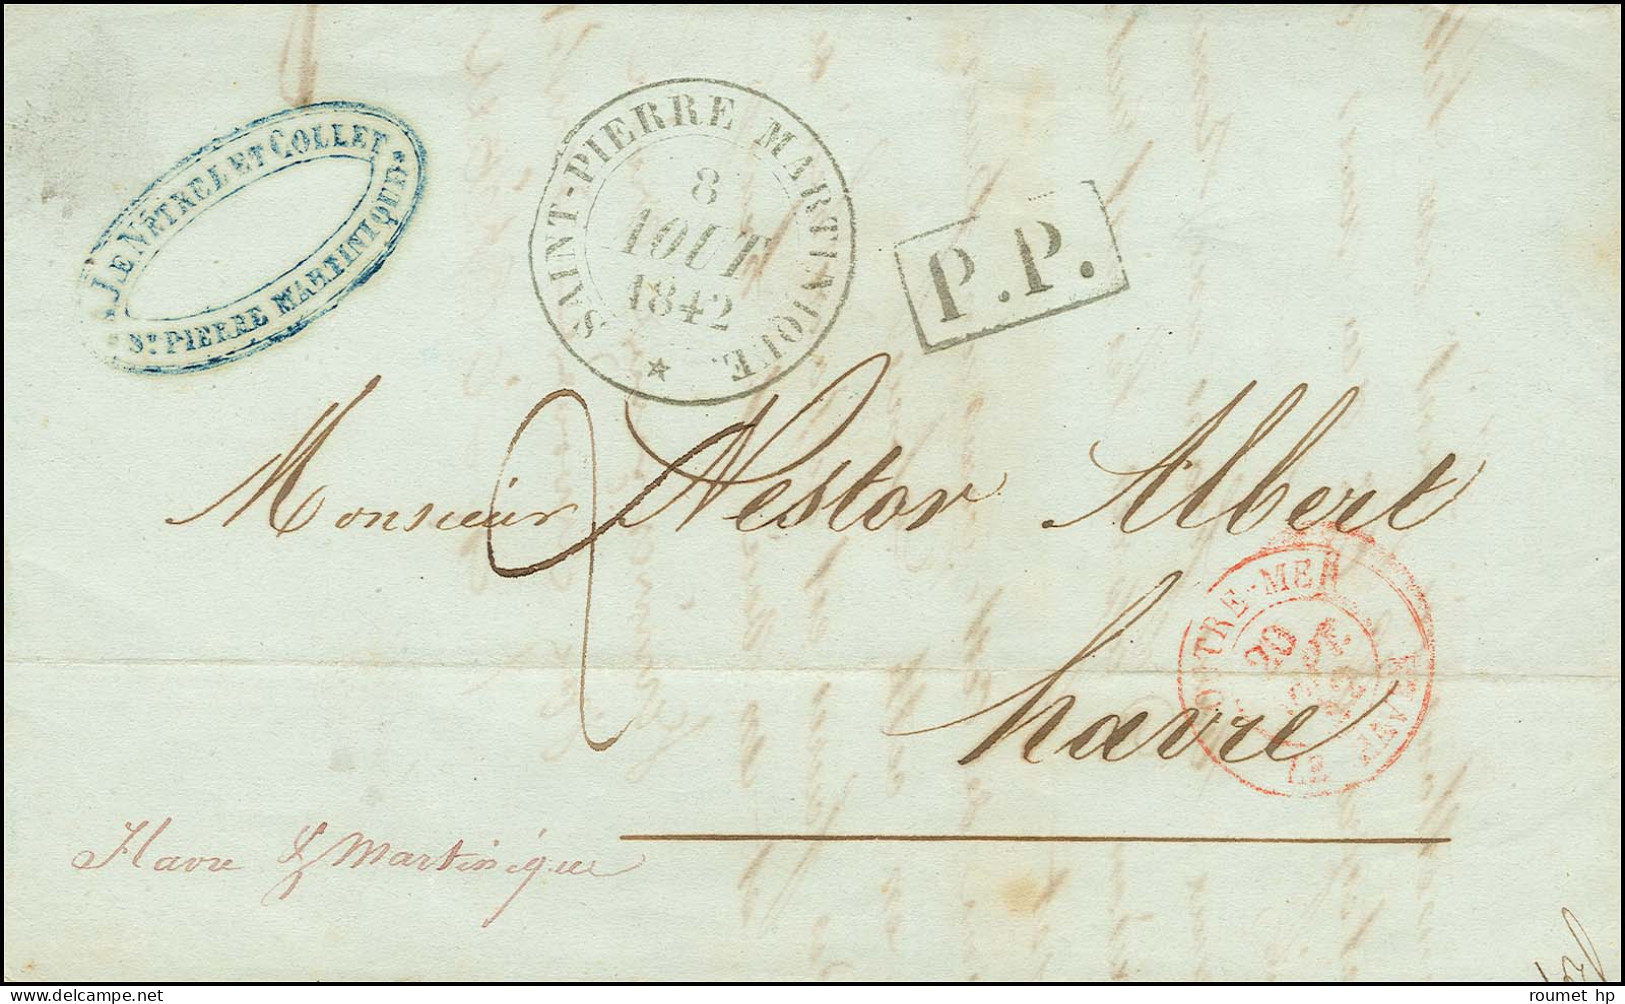 JENÊTREL ET COLLET
ST PIERRE MARTINIQUE
SAINT-PIERRE MARTINIQUE.
8
AOUT
1842
P.P.
2
Monsieur Nestor Albert
havre
OUTRE-MER
LE HAVRE
20
Havre & Martinique
delcampe.net
roumet hp